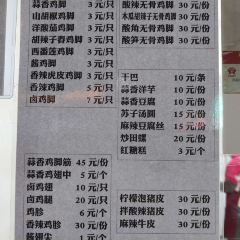 蒜香鸡脚 3元/只
山胡椒鸡脚 3元/只
洋酸茄鸡脚 3元/只
胡辣子舂鸡脚 3元/只
西番莲鸡脚 3元/只
酱鸡脚 3元/只
香辣虎皮鸡脚 3元/只
香辣鸡脚 3元/只
卤鸡脚 7元/只
蒜香鸡脚筋 45元/份
蒜香鸡翅中 5元/个
卤鸡翅 10元/个
卤鸡腿 20元/个
鸡胗 6元/个
香辣鸡胗 30元/份
酸辣无骨鸡脚 30元/份
木瓜胡辣子无骨鸡脚 30元/份
酸角无骨鸡脚 30元/份
酸笋无骨鸡脚 30元/份
干巴 10元/条
蒜香洋芋 10元/份
蒜香豆腐 10元/份
苏子汤圆 10元/份
麻辣豆腐丝 15元/份
炒田螺 20元/份
红糖糕 3元/个
柠檬泡猪皮 30元/份
拌酸辣猪皮 30元/份
麻辣牛皮 30元/份